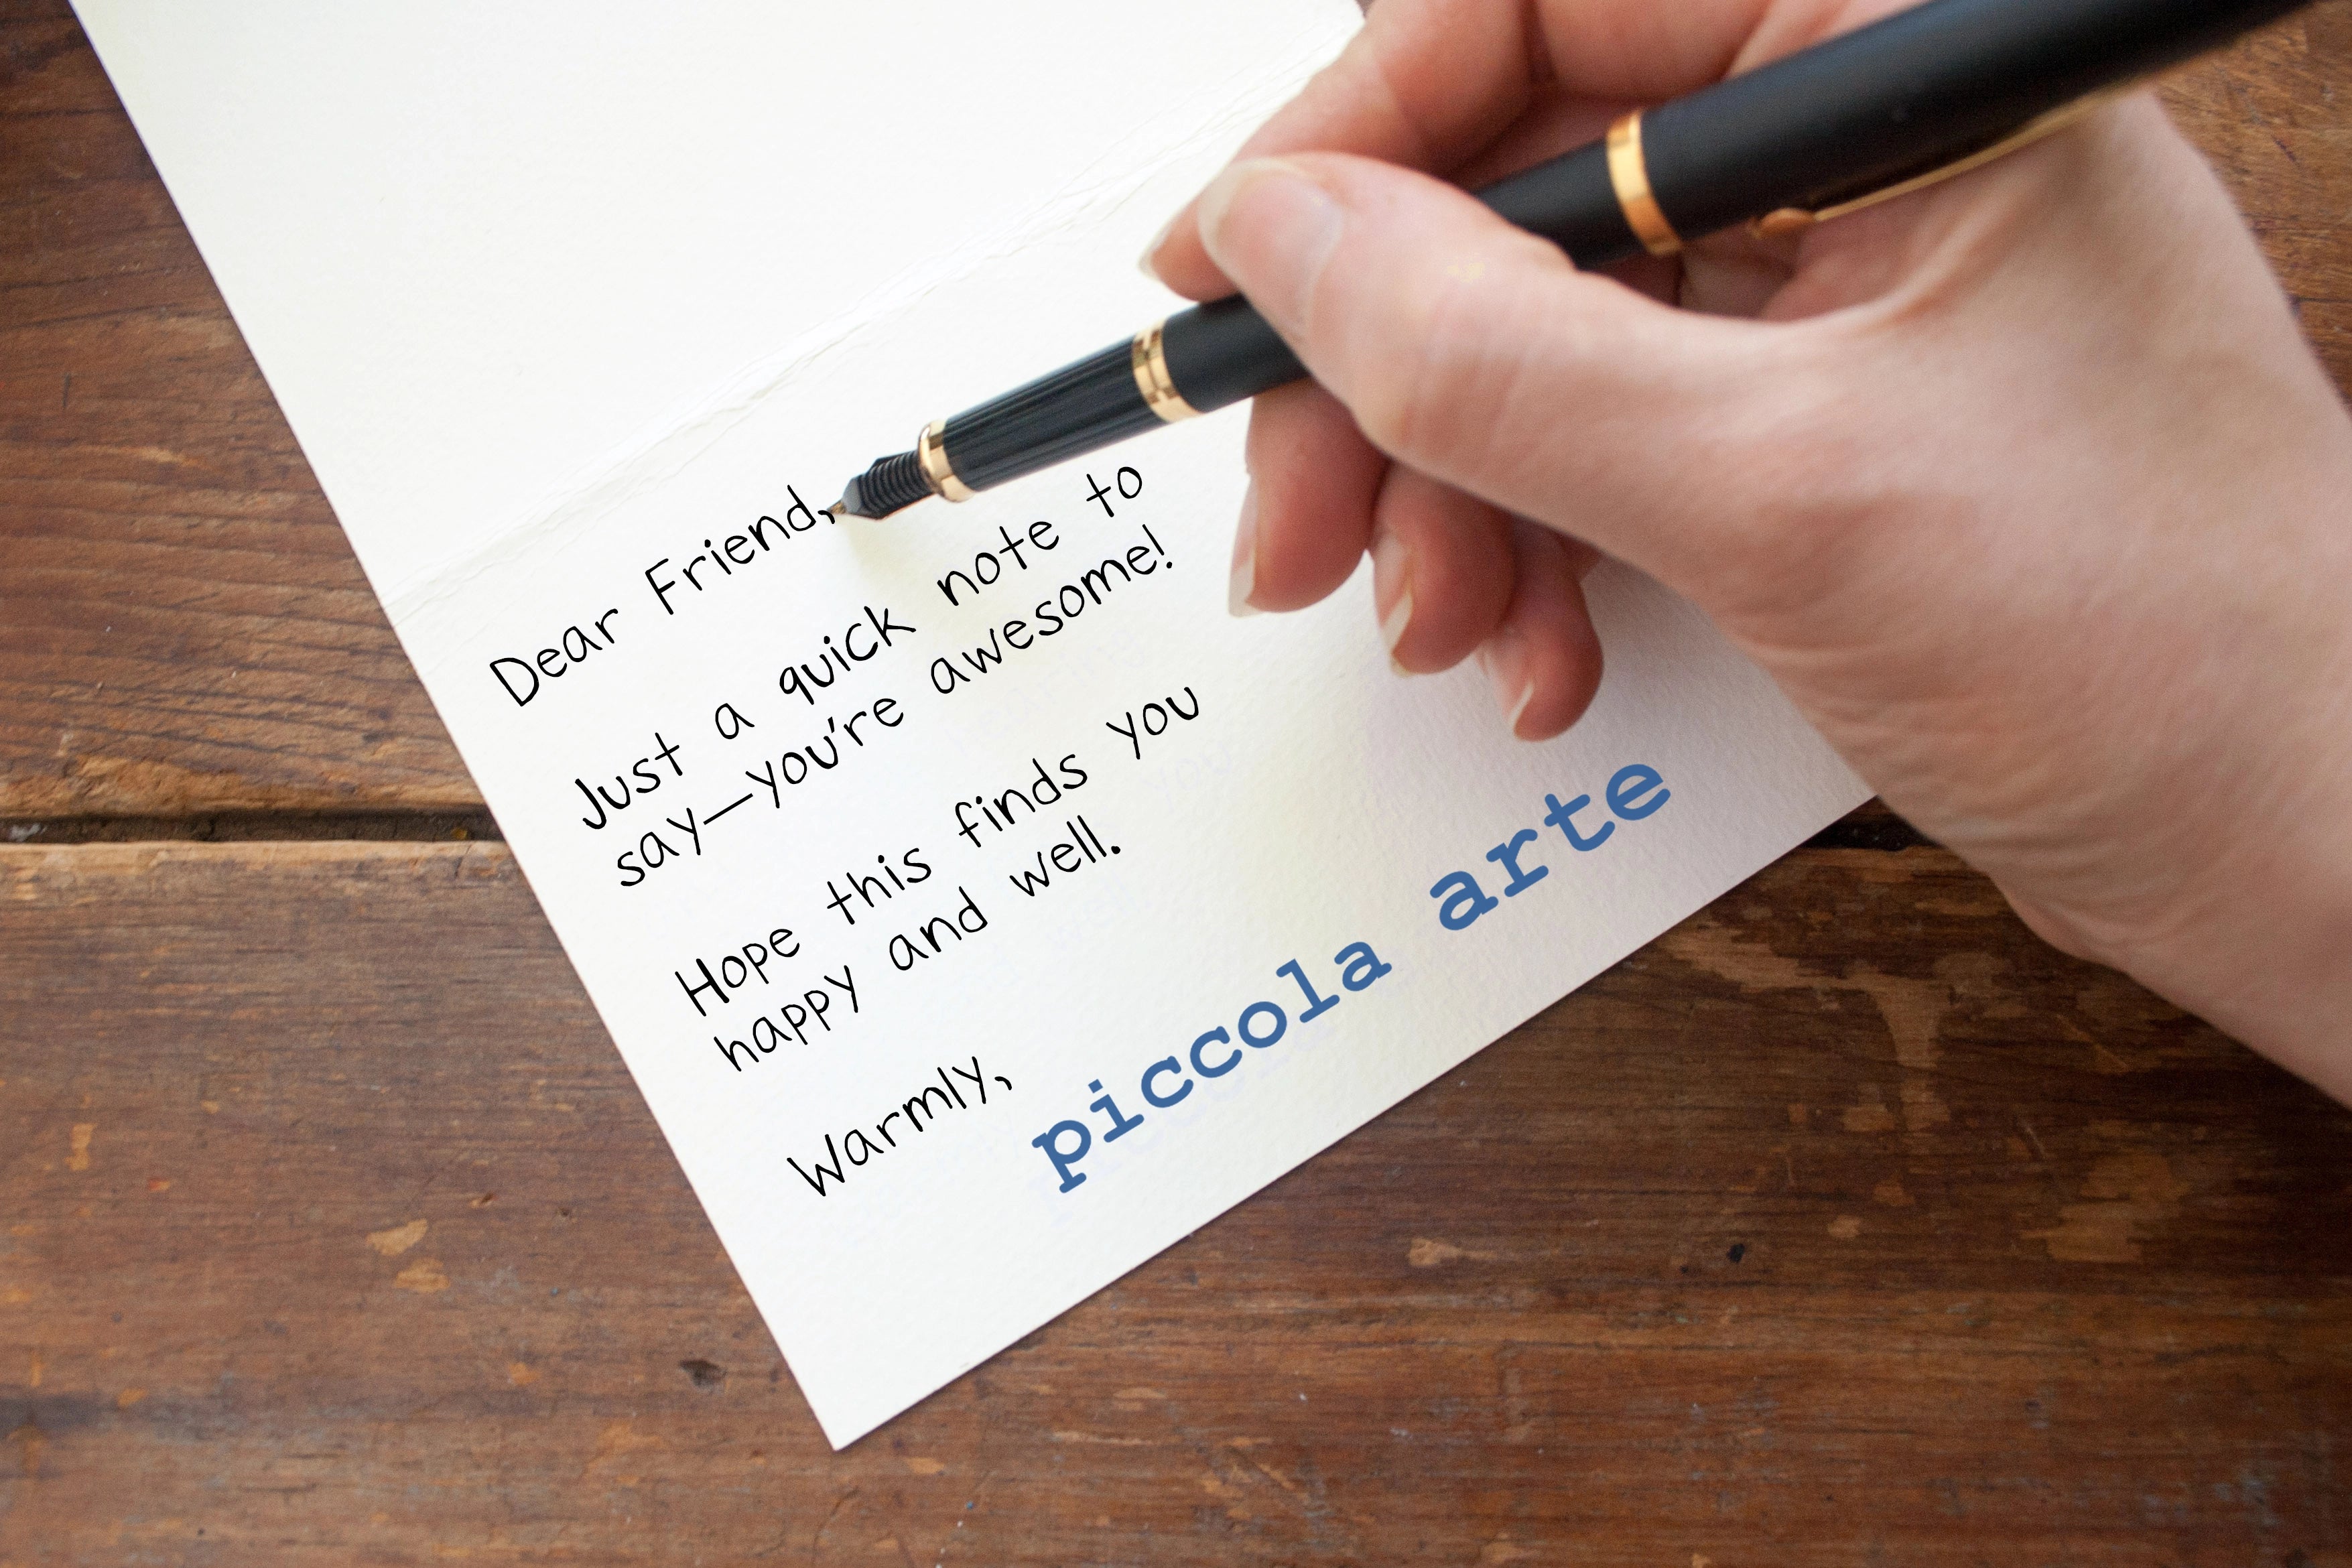 Dear Friend,
Just a quick note to
say—you're awesome!
Hope this finds you
happy and well.
Warmly,
piccola arte